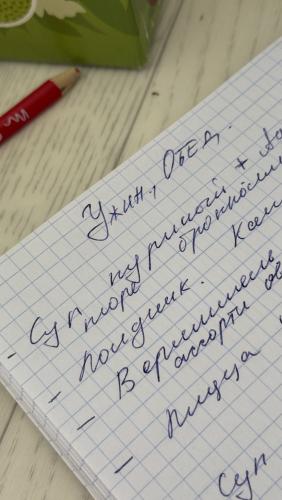 Ужин., ОБЕД.
- Суп куриный +
пюре
- Полдник.
- Вермишель
ассорти ов
- Пицца
Суп